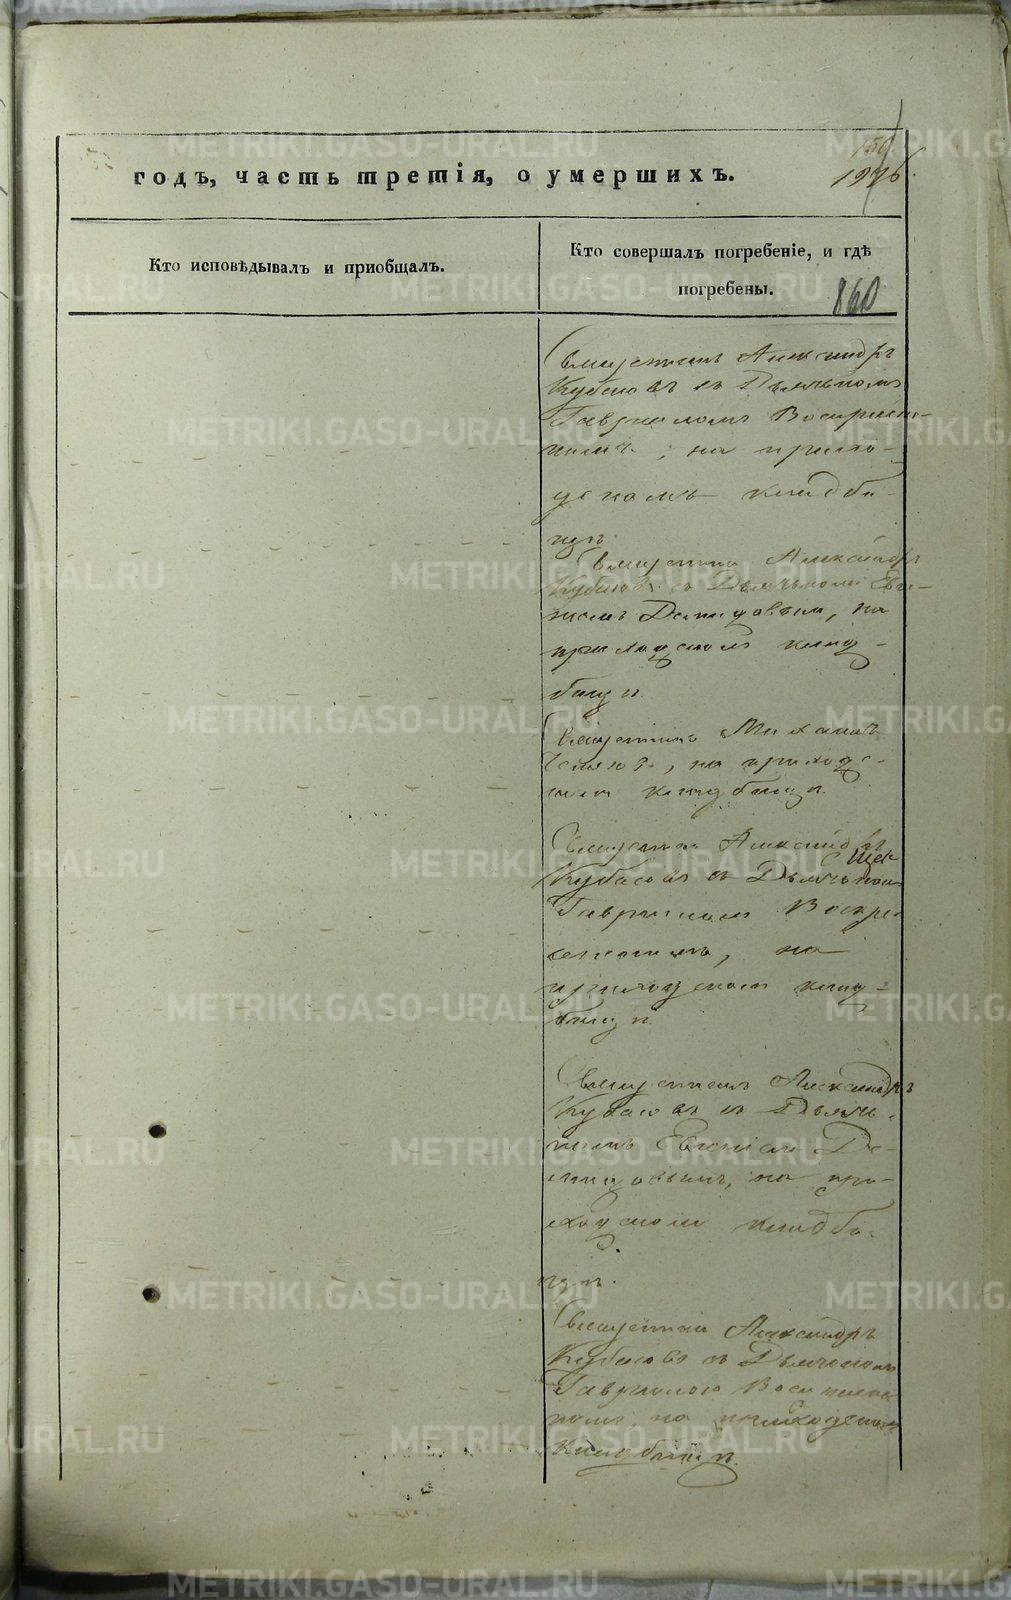 METRIKI.GASO-URAL.RU
годъ, часть третія, о умершихъ.
Кто исповѣдывалъ и приобщалъ.
Кто совершалъ погребеніе, и гдѣ
погребены.
860
Священникъ Александръ
Кубасовъ съ Дьячкомъ
Гавриломъ Воскресен-
скимъ, на приход-
скомъ кладби-
щѣ.
Священникъ Александръ
Кубасовъ съ Дьячкомъ Евге-
ніемъ Демидовымъ, на
приходскомъ клад-
бищѣ.
Священникъ Михаилъ
на приход-
скомъ кладбищѣ.
Священникъ Александръ
Кубасовъ съ Дьячкомъ
Гавриломъ Воскре-
сенскимъ, на
приходскомъ клад-
бищѣ.
Священникъ Александръ
Кубасовъ съ Дьяч-
комъ Евгеніемъ Де-
мидовымъ, на при-
ходскомъ кладби-
щѣ.
Священникъ Александръ
Кубасовъ съ Дьячкомъ
Гавриломъ Воскресен-
скимъ, на приходскомъ
кладбищѣ.